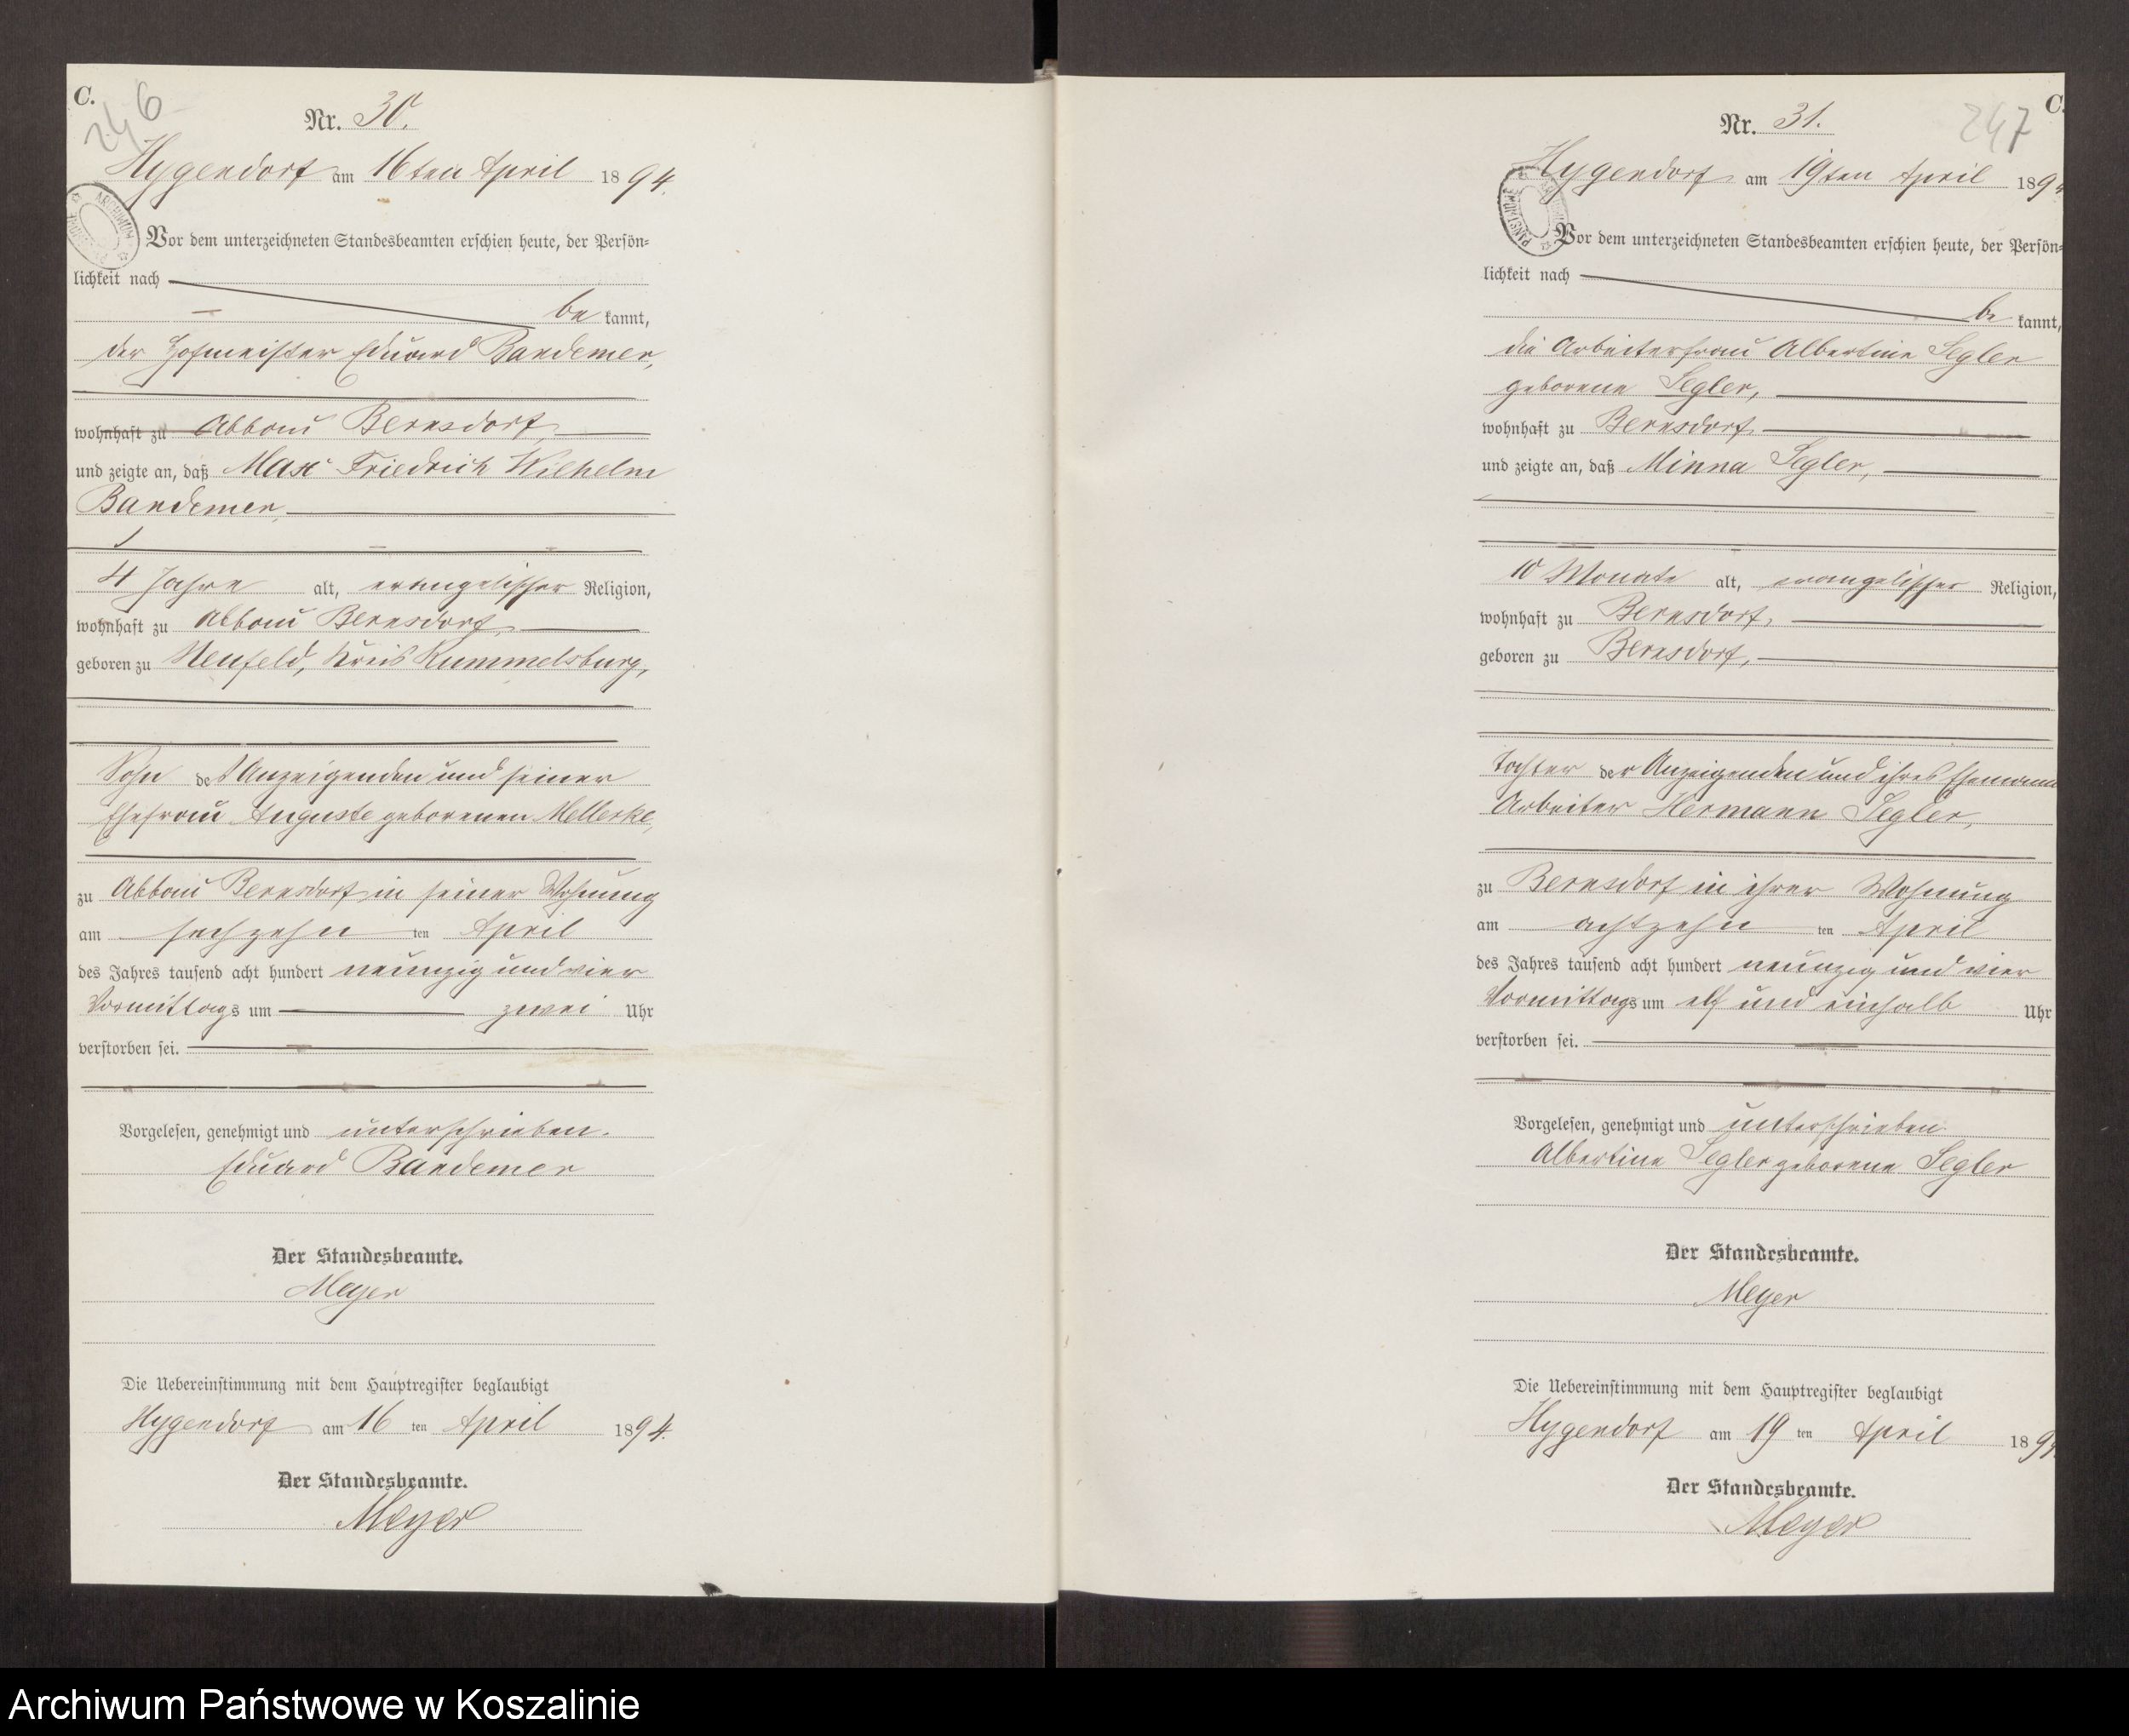 C.
246
Nr. 30.
Hygendorf am 16ten April 1894.
Vor dem unterzeichneten Standesbeamten erschien heute, der Persön=
lichkeit nach
be kannt,
der Hofmeister Eduard Bandemer,
wohnhaft zu Abbau Bernsdorf,
und zeigte an, daß Max Friedrich Wilhelm
Bandemer,
4 Jahre alt, evangelischer Religion,
wohnhaft zu Abbau Bernsdorf,
geboren zu Neufeld, Kreis Rummelsburg,
Sohn des Anzeigenden und seiner
Ehefrau Auguste geborenen Mellerke,
zu Abbau Bernsdorf in seiner Wohnung
am sechzehn ten April
des Jahres tausend acht hundert neunzig und vier
Vormittags um zwei Uhr
verstorben sei.
Vorgelesen, genehmigt und unterschrieben.
Eduard Bandemer
Der Standesbeamte.
Meyer
Die Uebereinstimmung mit dem Hauptregister beglaubigt
Hygendorf am 16 ten April 1894.
Der Standesbeamte.
Meyer
C.
247
Nr. 31.
Hygendorf am 19ten April 1894
Vor dem unterzeichneten Standesbeamten erschien heute, der Persön=
lichkeit nach
be kannt,
die Arbeiterfrau Albertine Segler
geborene Segler,
wohnhaft zu Bernsdorf
und zeigte an, daß Minna Segler,
10 Monate alt, evangelischer Religion,
wohnhaft zu Bernsdorf,
geboren zu Bernsdorf,
Tochter der Anzeigenden und ihres Ehemann
Arbeiter Hermann Segler,
zu Bernsdorf in ihrer Wohnung
am achtzehn ten April
des Jahres tausend acht hundert neunzig und vier
Vormittags um elf und einhalb Uhr
verstorben sei.
Vorgelesen, genehmigt und unterschrieben.
Albertine Segler geborene Segler
Der Standesbeamte.
Meyer
Die Uebereinstimmung mit dem Hauptregister beglaubigt
Hygendorf am 19 ten April 1894
Der Standesbeamte.
Meyer
Archiwum Państwowe w Koszalinie